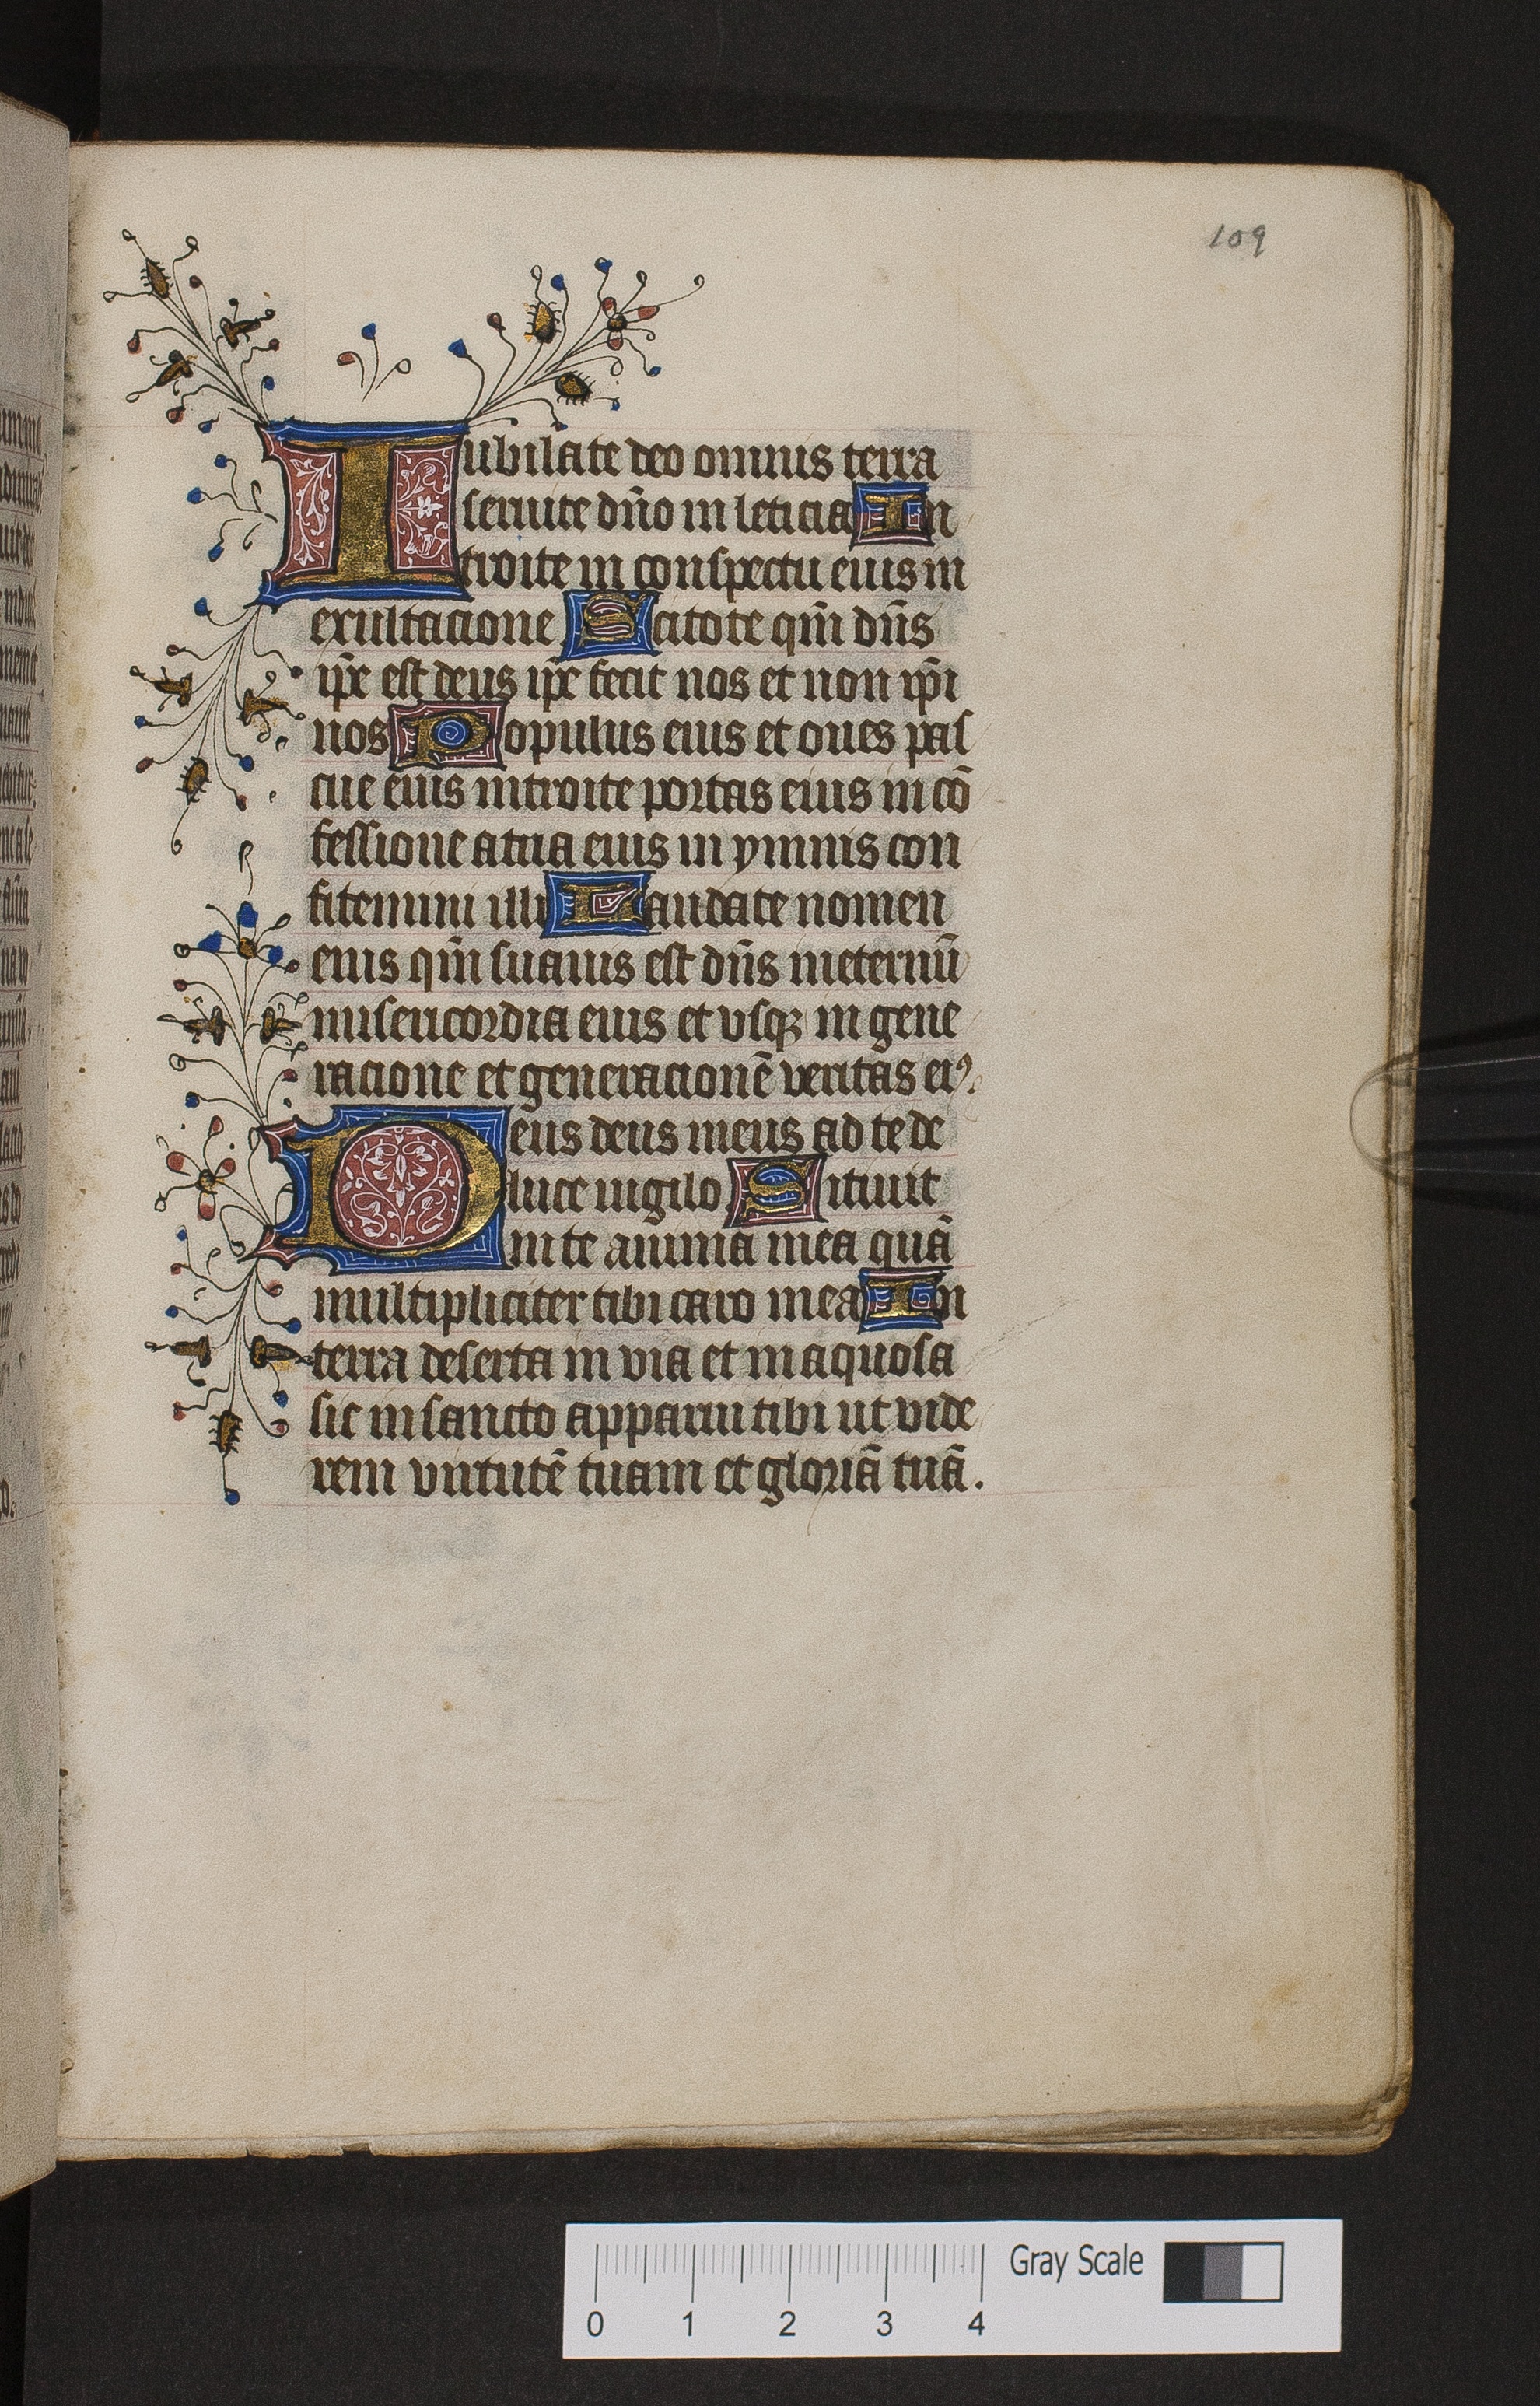 109
Iubilate deo omnis terra
seruite dn̄o in leticia In
troite in conspectu eius in
exultacione Scitote qm̄ dn̄s
ip̄e est deus ip̄e fecit nos et non ip̄i
nos Populus eius et oues pas
cue eius introite portas eius in cō
fessione atria eius in ymnis con
fitemini illi Laudate nomen
eius qm̄ suauis est dn̄s in eternū
misericordia eius et usqꝫ in gene
racione et generacionē veritas eiꝰ.
Deus deus meus ad te de
luce uigilo Sitiuit
in te anima mea quā
multipliciter tibi caro mea In
terra deserta in via et in aquosa
sic in sancto apparui tibi ut vide
rem virtutē tuam et gloriā tuā.
Gray Scale
0 1 2 3 4